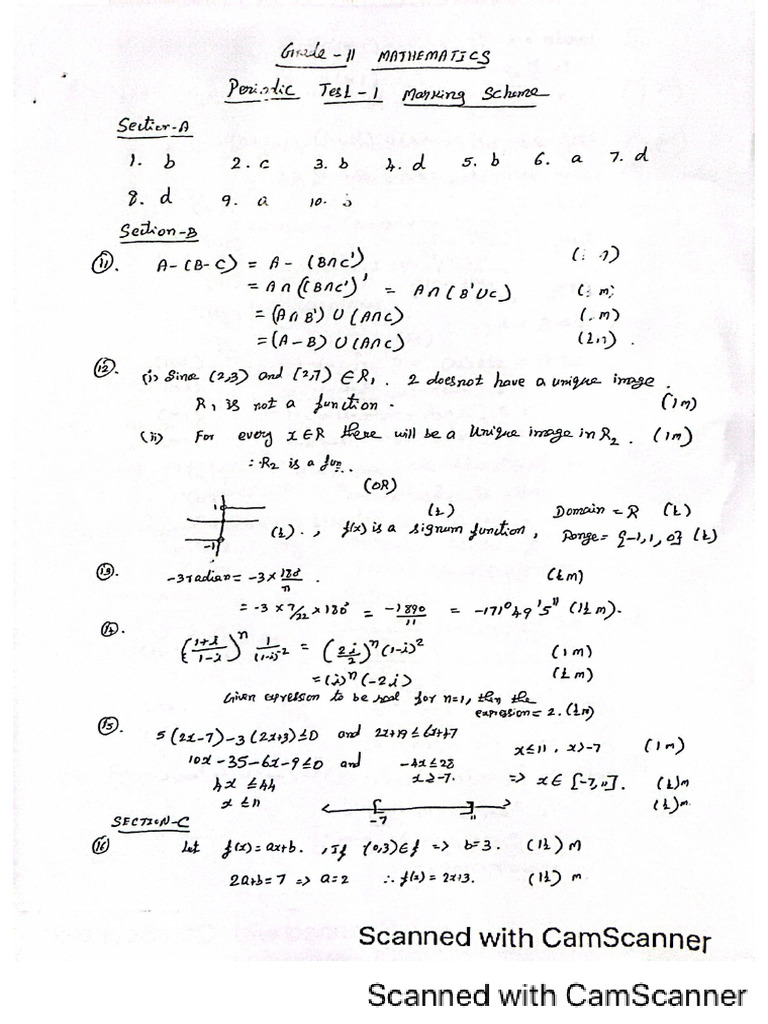 Grade - 11 MATHEMATICS
Periodic Test - 1 Marking Scheme
Section-A
1. b 2. c 3. b 4. d 5. b 6. a 7. d
8. d 9. a 10.
Section-B
(11). A-(B-C) = A-(B∩C')
= A∩(B∩C')' = A∩(B'∪C)
= (A∩B')∪(A∩C)
= (A-B)∪(A∩C)
(12). (i) Since (2,3) and (2,7) ∈ R₁. 2 does not have a unique image.
R₁ is not a function. (1m)
(ii) For every x∈R there will be a Unique image in R₂. (1m)
∴ R₂ is a
(OR)
1 (½) Domain = R (½)
-1 (½). , f(x) is a signum function, Range = {-1,1,0} (½)
(13). -3 radian = -3 × 180°/π. (½m)
= -3 × 7/22 × 180° = -1890/11 = -171°49'5" (1½m).
(14). ((1+i)/(1-i))ⁿ 1/(1-i)⁻² = (2i/2)ⁿ(1-i)² (1m)
= (i)ⁿ(-2i) (½m)
Given expression to be real for n=1, then the
expression = 2. (½m)
(15). 5(2x-7)-3(2x+3)≤0 and 2x+19≤6x+47
10x-35-6x-9≤0 and -4x≤28 x≤11, x>-7 (1m)
4x ≤44 x≥-7. => x∈ [-7,11]. (½)m
x ≤11 -7 11 (½)m
SECTION-C
(16) Let f(x) = ax+b. , If (0,3)∈f => b=3. (1½) m
2a+b=7 => a=2 ∴ f(x) = 2x+3. (1½) m
Scanned with CamScanner
Scanned with CamScanner